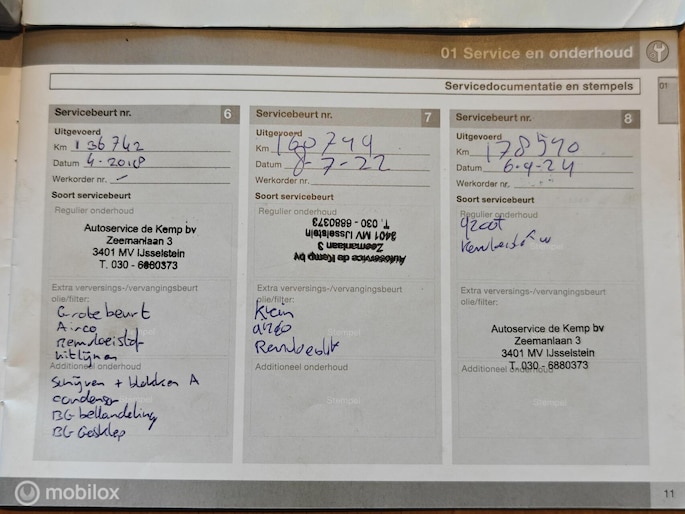 01 Service en onderhoud
Servicedocumentatie en stempels
01
Servicebeurt nr. 6
Uitgevoerd
Km 136742
Datum 4-2018
Werkorder nr. -
Soort servicebeurt
Regulier onderhoud
Autoservice de Kemp bv
Zeemanlaan 3
3401 MV IJsselstein
T. 030 - 6880373
Extra verversings-/vervangingsbeurt
olie/filter:
Grote beurt
Airco
Remvloeistof
uitlijnen
Stempel
Additioneel onderhoud
Schijven + blokken A
condensor
BG behandeling
BG Gasklep
Stempel
Servicebeurt nr. 7
Uitgevoerd
Km 160749
Datum 8-7-22
Werkorder nr.
Soort servicebeurt
Regulier onderhoud
Autoservice de Kemp bv
Zeemanlaan 3
3401 MV IJsselstein
T. 030 - 6880373
Extra verversings-/vervangingsbeurt
olie/filter:
Klein
airco
Stempel
Additioneel onderhoud
Stempel
Servicebeurt nr. 8
Uitgevoerd
Km 178540
Datum 6-4-24
Werkorder nr.
Soort servicebeurt
Regulier onderhoud
groot
Extra verversings-/vervangingsbeurt
olie/filter:
Autoservice de Kemp bv
Zeemanlaan 3
3401 MV IJsselstein
T. 030 - 6880373
Additioneel onderhoud
Stempel
mobilox
11